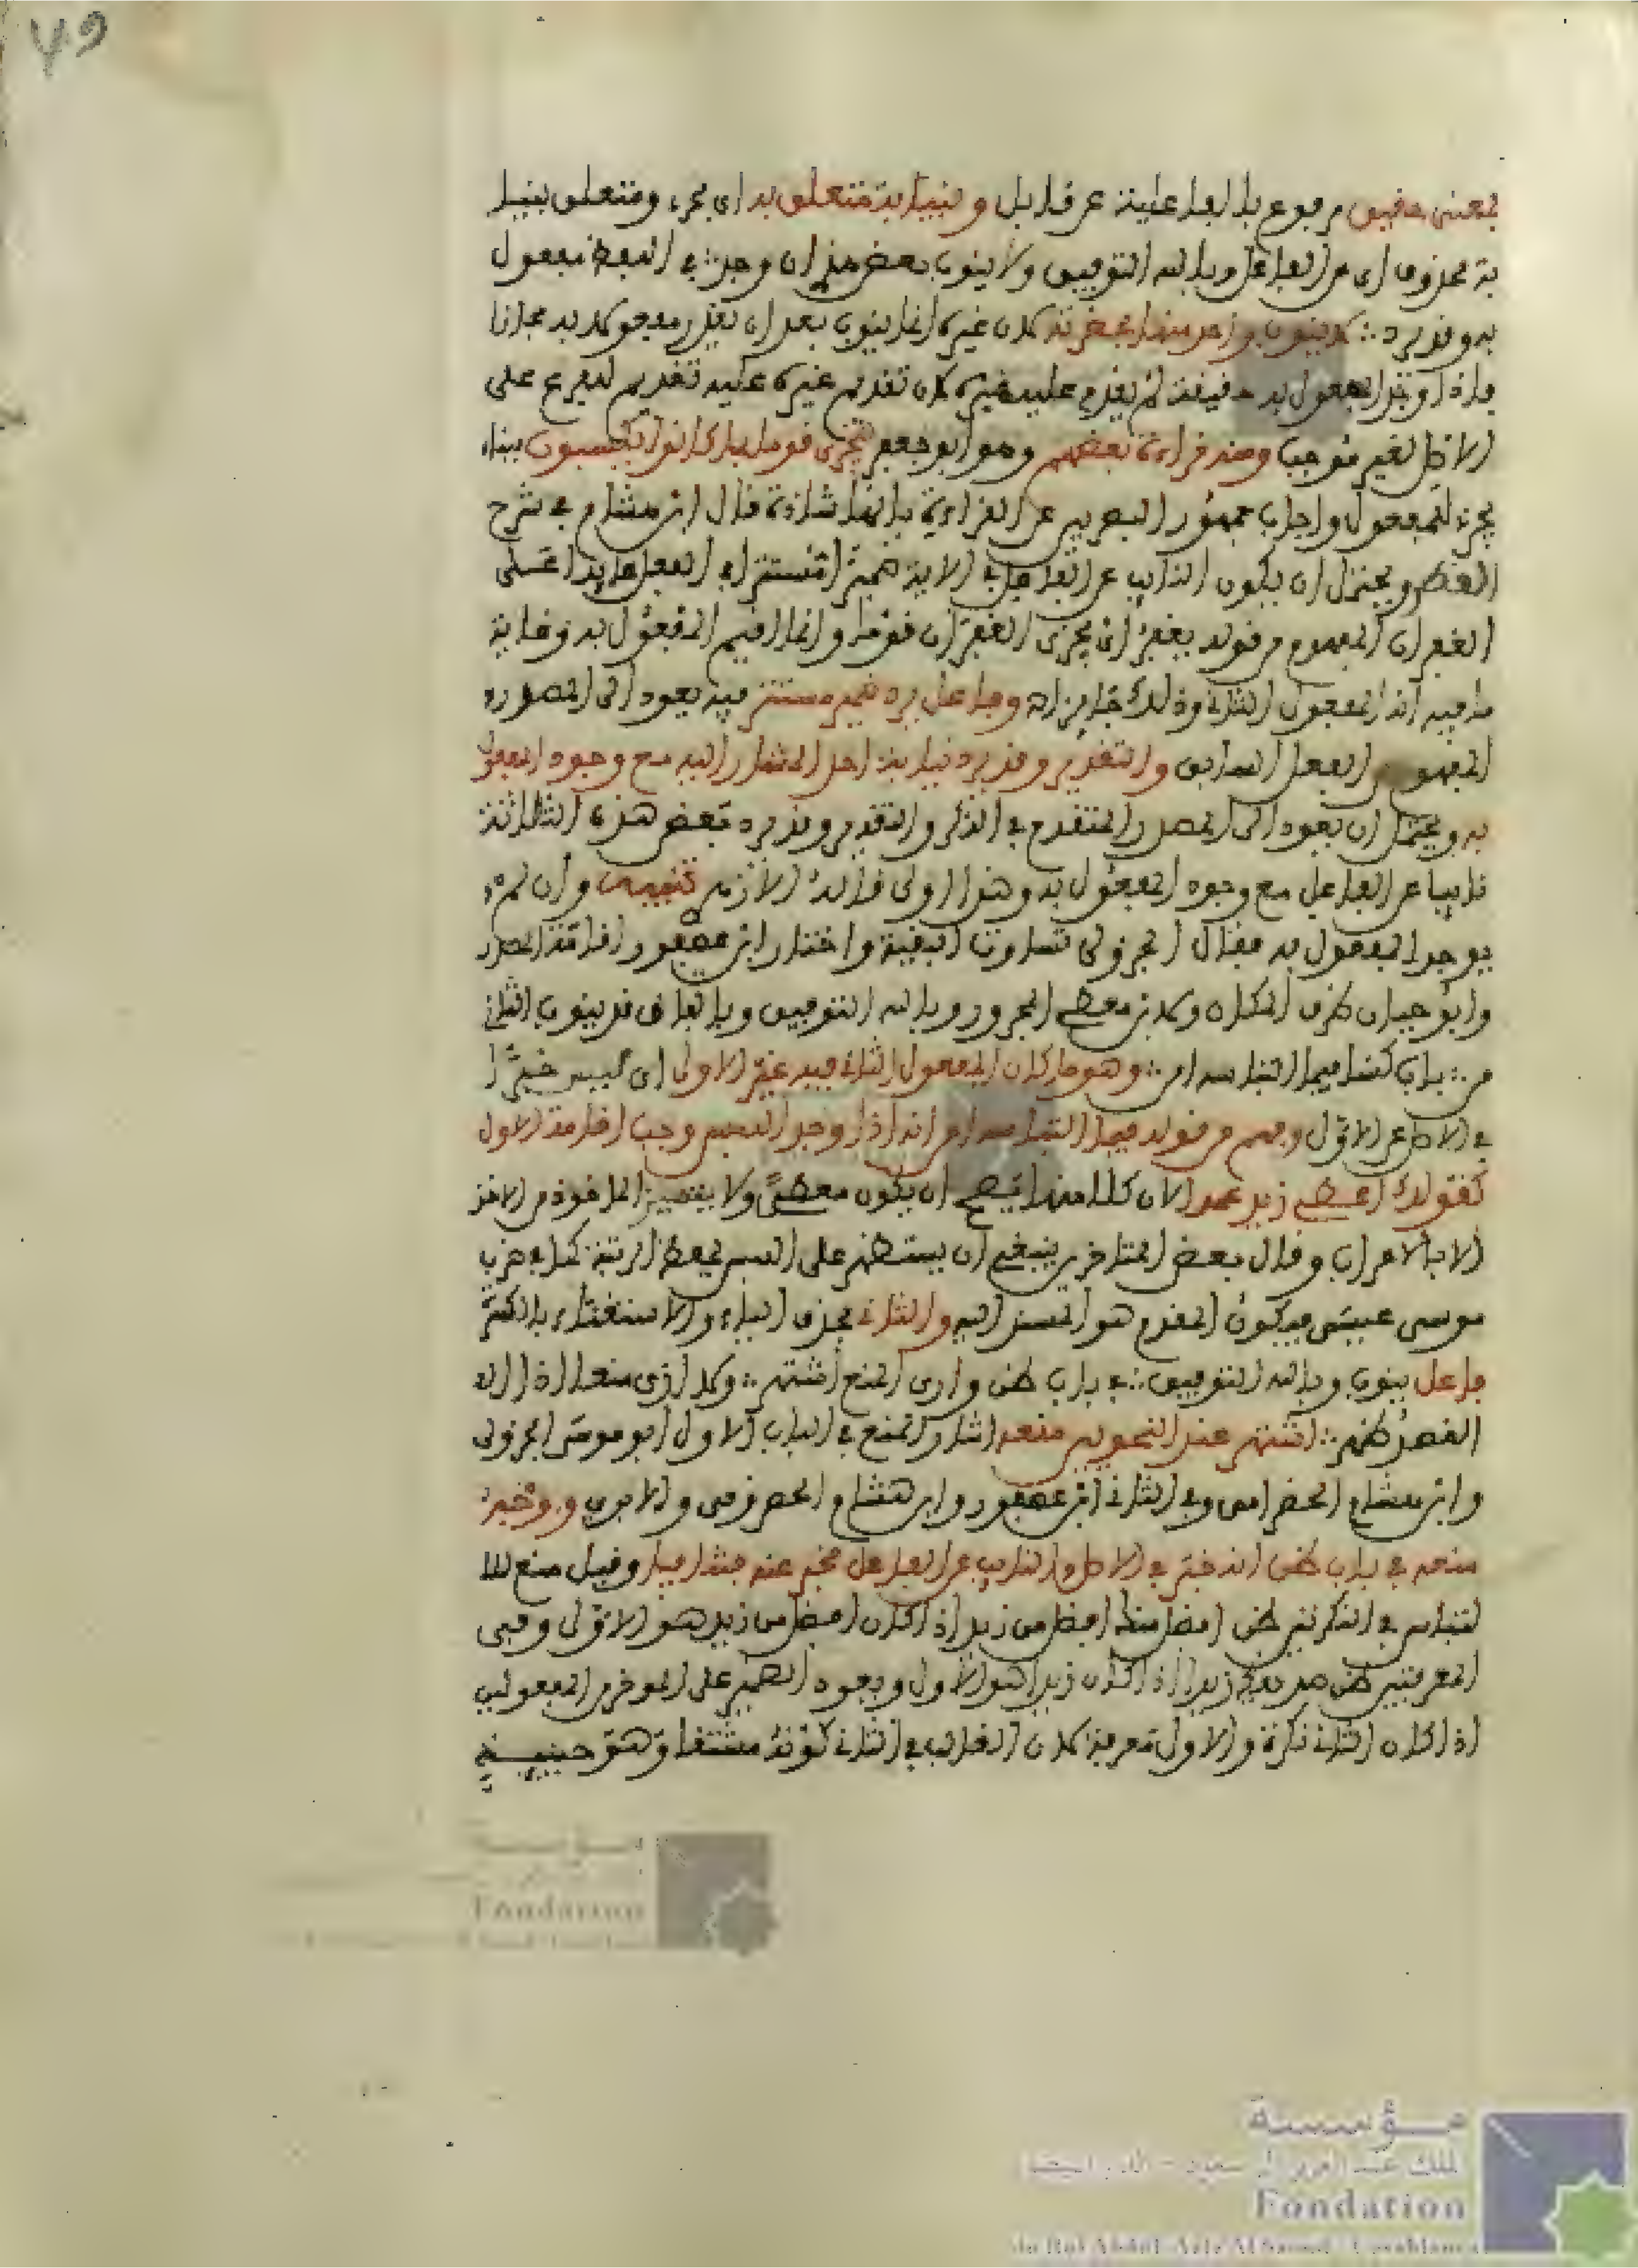 ٧٩
بمعنى حقيق مرفوع بالفاعلية عر قابل وبنيابة متعلق به اى بحر، ومتعلق بنيا
بة محذوف اى عن الفاعل وبالله التوفيق ولا ينوب بعض هذى ان وجد في اللفظ مفعول
به وقد يرد ∴ كان غيره انما ينوب بعد ان يقدر مفعولا به مجازا
فاذا وجد المفعول به حقيقة لم يقدم عليه غيره لان تقديم غيره عليه تقديم الفرع على
الاصل لغير موجب ومنه قراءة بعضهم وهو ابو جعفر ليجزى قوما بما كانوا يكسبون ببناء
يجزى للمفعول واجاب جمهور البصريين عن القراءة بانها شاذة قال ابن هشام في شرح
القطر ويحتمل ان يكون النائب عن الفاعل في الاية ضميرا مستترا في الفعل عايدا على
الغفران المفهوم من قوله يغفروا اى ليجزى الغفران قوما وانما اقيم المفعول به وغاية
ما فيه انه المفعول الثاني وذلك جايز اه وفاعل يرد ضمير مستتر فيه يعود الى المصدر
المفهوم من الفعل السابق والتقدير وقد يرد نيابة احد المشار اليه مع وجود المفعول
به ويحتمل ان يعود الى المصدر المتقدم في الذكر والتقدير وقد يرد بعض هذه الثلاثة
نايبا عن الفاعل مع وجود المفعول به وهذا اولى قاله الازهر تنبيه وان لم
يوجد المفعول به فقال الجزولى تساوت البقية واختار ابن عصفور اقامة المصدر
وابو حيان ظرف المكان وابن معط المجرور وبالله التوفيق وباتفاق قد ينوب الثاني
من ∴ باب كسا فيما التباسه امن ∴ وهو ما كان المفعول الثاني فيه غير الاول اى ليس خبرا
في الاصل عن الاول وفهم من قوله فيما التباسه امن انه اذا وجد اللبس وجب اقامة الاول
كقولك اعطى زيد عمرا لان كلا منهما يصح ان يكون معطى ولا يتميز الماخوذ من الاخذ
الا بالاعراب وقال بعض المتاخرين ينبغي ان يستظهر على اللبس بحفظ الرتبة كما في ضرب
موسى عيسى فيكون المقدم هو المسند اليه والثاني بحذف الياء والاستغناء بالكسرة
فاعل ينوب وبالله التوفيق ∴ في باب ظن وارى المنع اشتهر ∴ ولا ارى منعا اذا
القصد ظهر ∴ اشتهر عند النحويين منعه اشار للمنع في الباب الاول ابو موسى الجزولى
وابن هشام الخضراوى وفي الثاني ابن عصفور وابن هشام
منعه في باب ظن انه خبر في الاصل والنايب عن الفاعل مخبر عنه فتنافيا وقيل منع للا
لتباس في النكرتين ظن افضل منك افضل من زيد اذا كان افضل من زيد هو الاول وفى
المعرفتين ظن صديقك زيدا اذا كان زيدا هو الاول ويعود الضمير على الموخر في المفعولين
اذا كان الثاني نكرة والاول معرفة لان الغالب في الثاني كونه مشتقا وهو حينيذ
مؤسسة
الملك عبد العزيز آل سعود - الدار البيضاء
Fondation
du Roi Abdul-Aziz Al Saoud - Casablanca